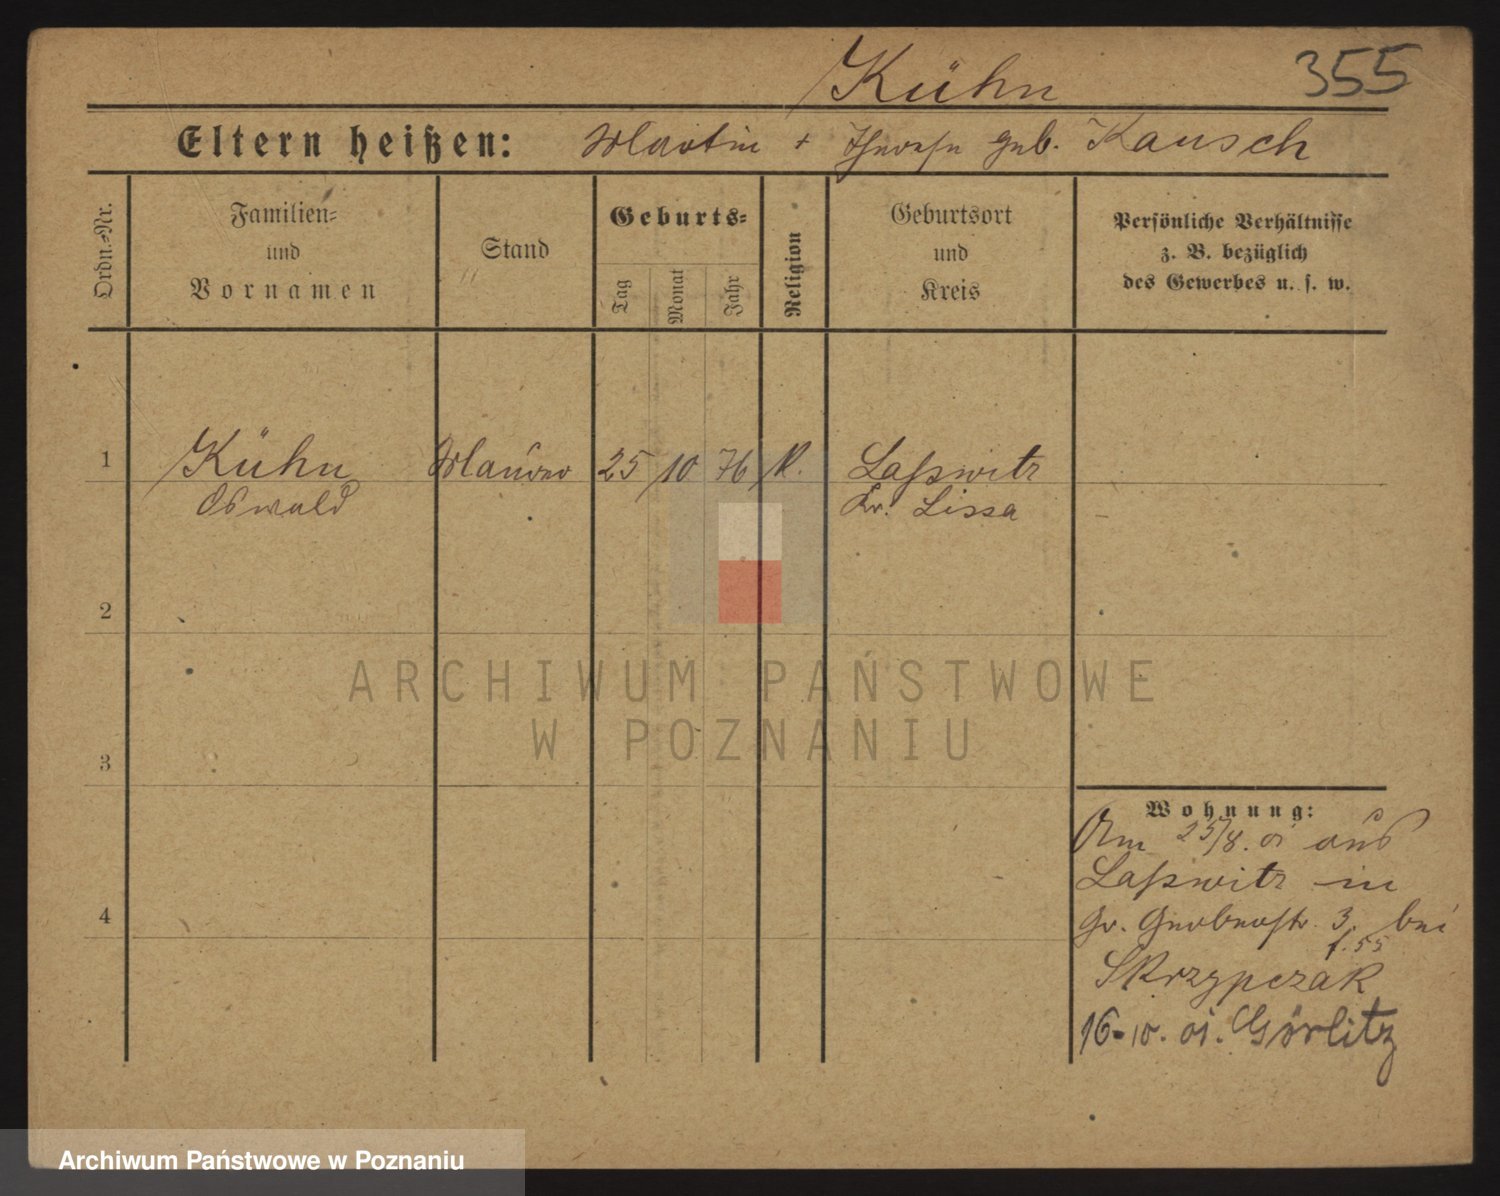 Kühn 355
Eltern heißen: Martin + Therese geb. Kausch
Ordn.=Nr.
Familien=
und
Vornamen
Stand
Geburts=
Tag
Monat
Jahr
Religion
Geburtsort
und
Kreis
Persönliche Verhältnisse
z. B. bezüglich
des Gewerbes u. s. w.
1 Kühn Maurer 25 10 76 K. Laßwitz
Oswald Kr. Lissa
2
3
4
Wohnung:
Am 25/8. 01 aus
Laßwitz in
Gr. Gerberstr. 3. bei
f. 55
Skrzypczak
16-10. 01. Görlitz
ARCHIWUM PAŃSTWOWE
W POZNANIU
Archiwum Państwowe w Poznaniu